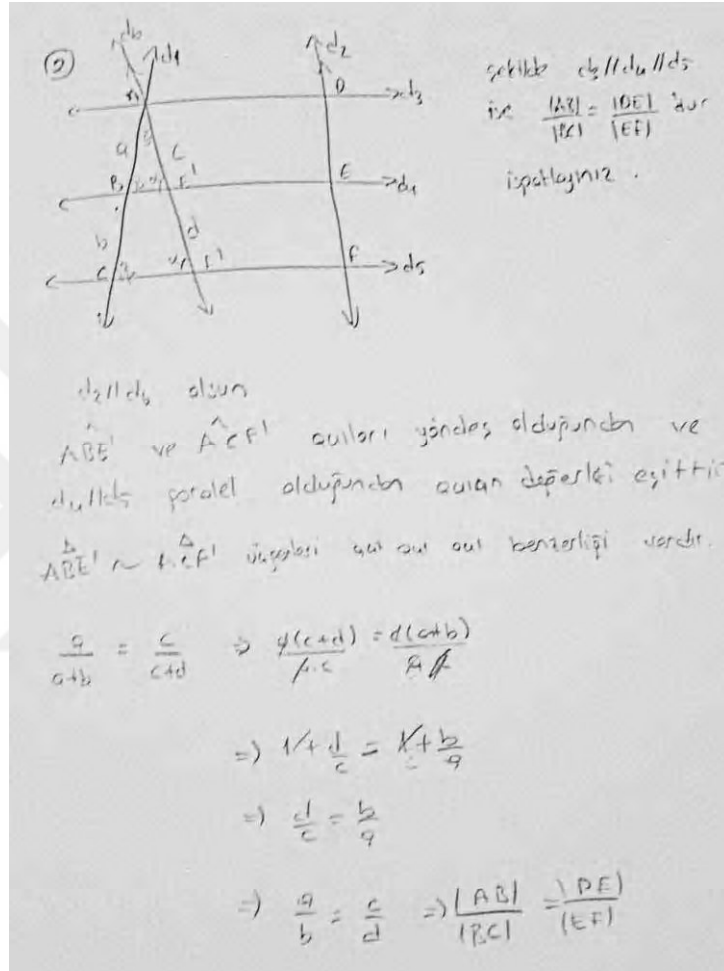 ②
d6
d1
d2
A
D
d3
a
c
B
E'
E
d4
b
d
C
F'
F
d5
şekilde d3//d4//d5
ise |AB|/|BC| = |DE|/|EF| 'dur
ispatlayınız.
d2//d6 olsun
ABE' ve ACF' açıları yöndeş olduğundan ve
d4//d5 paralel olduğundan açıların değerleri eşittir
ABE' ~ ACF' üçgenleri açı açı açı benzerliği vardır.
a/(a+b) = c/(c+d) ⇒ a(c+d)/a.c = c(a+b)/a.c
⇒) 1+ d/c = 1+ b/a
⇒) d/c = b/a
⇒) a/b = c/d ⇒) |AB|/|BC| = |DE|/|EF|